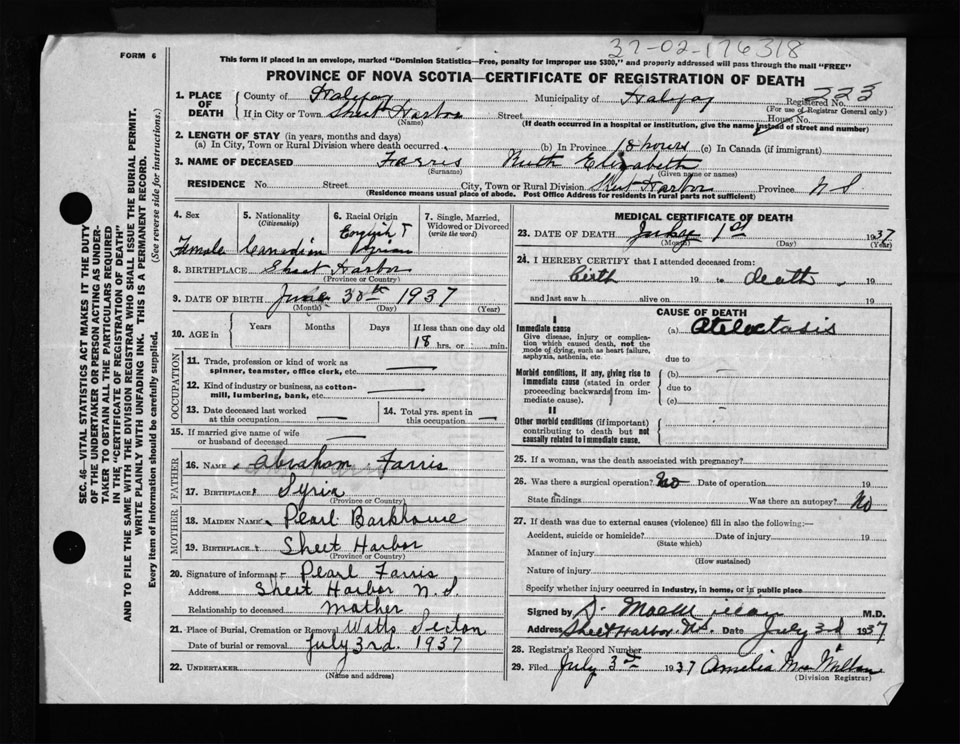 37-02-176318
FORM 6
This form if placed in an envelope, marked "Dominion Statistics—Free, penalty for improper use $300," and properly addressed will pass through the mail "FREE"
PROVINCE OF NOVA SCOTIA—CERTIFICATE OF REGISTRATION OF DEATH
1. PLACE OF DEATH County of Halifax Municipality of Halifax Registered No. 223
(For use of Registrar General only)
If in City or Town Sheet Harbor Street House No.
(Name) (If death occurred in a hospital or institution, give the name instead of street and number)
2. LENGTH OF STAY (in years, months and days)
(a) In City, Town or Rural Division where death occurred (b) In Province 18 hours (c) In Canada (if immigrant)
3. NAME OF DECEASED Farris Ruth Elizabeth
(Surname) (Given name or names)
RESIDENCE No. Street City, Town or Rural Division Sheet Harbor Province N S
(Residence means usual place of abode. Post Office Address for residents in rural parts not sufficient)
4. Sex Female
5. Nationality (Citizenship) Canadian
6. Racial Origin English &
7. Single, Married, Widowed or Divorced (write the word)
8. BIRTHPLACE Sheet Harbor
(Province or Country)
9. DATE OF BIRTH June 30th 1937
(Month) (Day) (Year)
10. AGE in Years Months Days If less than one day old
18 hrs. or min.
OCCUPATION
11. Trade, profession or kind of work as
spinner, teamster, office clerk, etc.
12. Kind of industry or business, as cotton-
mill, lumbering, bank, etc.
13. Date deceased last worked
at this occupation
14. Total yrs. spent in
this occupation
15. If married give name of wife
or husband of deceased
FATHER
16. NAME Abraham Farris
17. BIRTHPLACE Syria
(Province or Country)
MOTHER
18. MAIDEN NAME Pearl Barkhouse
19. BIRTHPLACE Sheet Harbor
(Province or Country)
20. Signature of informant Pearl Farris
Address Sheet Harbor N.S.
Relationship to deceased mother
21. Place of Burial, Cremation or Removal Watts Section
Date of burial or removal July 3rd. 1937
22. UNDERTAKER
(Name and address)
MEDICAL CERTIFICATE OF DEATH
23. DATE OF DEATH July 1st 1937
(Month) (Day) (Year)
24. I HEREBY CERTIFY that I attended deceased from:
birth 19 to death 19
and last saw h alive on 19
CAUSE OF DEATH
I
Immediate cause
Give disease, injury or complica-
tion which caused death, not the
mode of dying, such as heart failure,
asphyxia, asthenia, etc.
(a) Atelectasis
due to
Morbid conditions, if any, giving rise to
immediate cause (stated in order
proceeding backwards from im-
mediate cause).
(b)
due to
(c)
II
Other morbid conditions (if important)
contributing to death but not
causally related to immediate cause.
25. If a woman, was the death associated with pregnancy?
26. Was there a surgical operation? No Date of operation 19
State findings Was there an autopsy? No
27. If death was due to external causes (violence) fill in also the following:—
Accident, suicide or homicide? Date of injury 19
(State which)
Manner of injury
(How sustained)
Nature of injury
Specify whether injury occurred in industry, in home, or in public place
Signed by M.D.
Address Sheet Harbor N.S. Date July 3rd 1937
28. Registrar's Record Number
29. Filed July 3rd 1937 Amelia
(Division Registrar)
SEC. 46—VITAL STATISTICS ACT MAKES IT THE DUTY
OF THE UNDERTAKER OR PERSON ACTING AS UNDER-
TAKER TO OBTAIN ALL THE PARTICULARS REQUIRED
IN THE "CERTIFICATE OF REGISTRATION OF DEATH"
AND TO FILE THE SAME WITH THE DIVISION REGISTRAR WHO SHALL ISSUE THE BURIAL PERMIT.
WRITE PLAINLY WITH UNFADING INK. THIS IS A PERMANENT RECORD.
Every item of information should be carefully supplied. (See reverse side for instructions.)